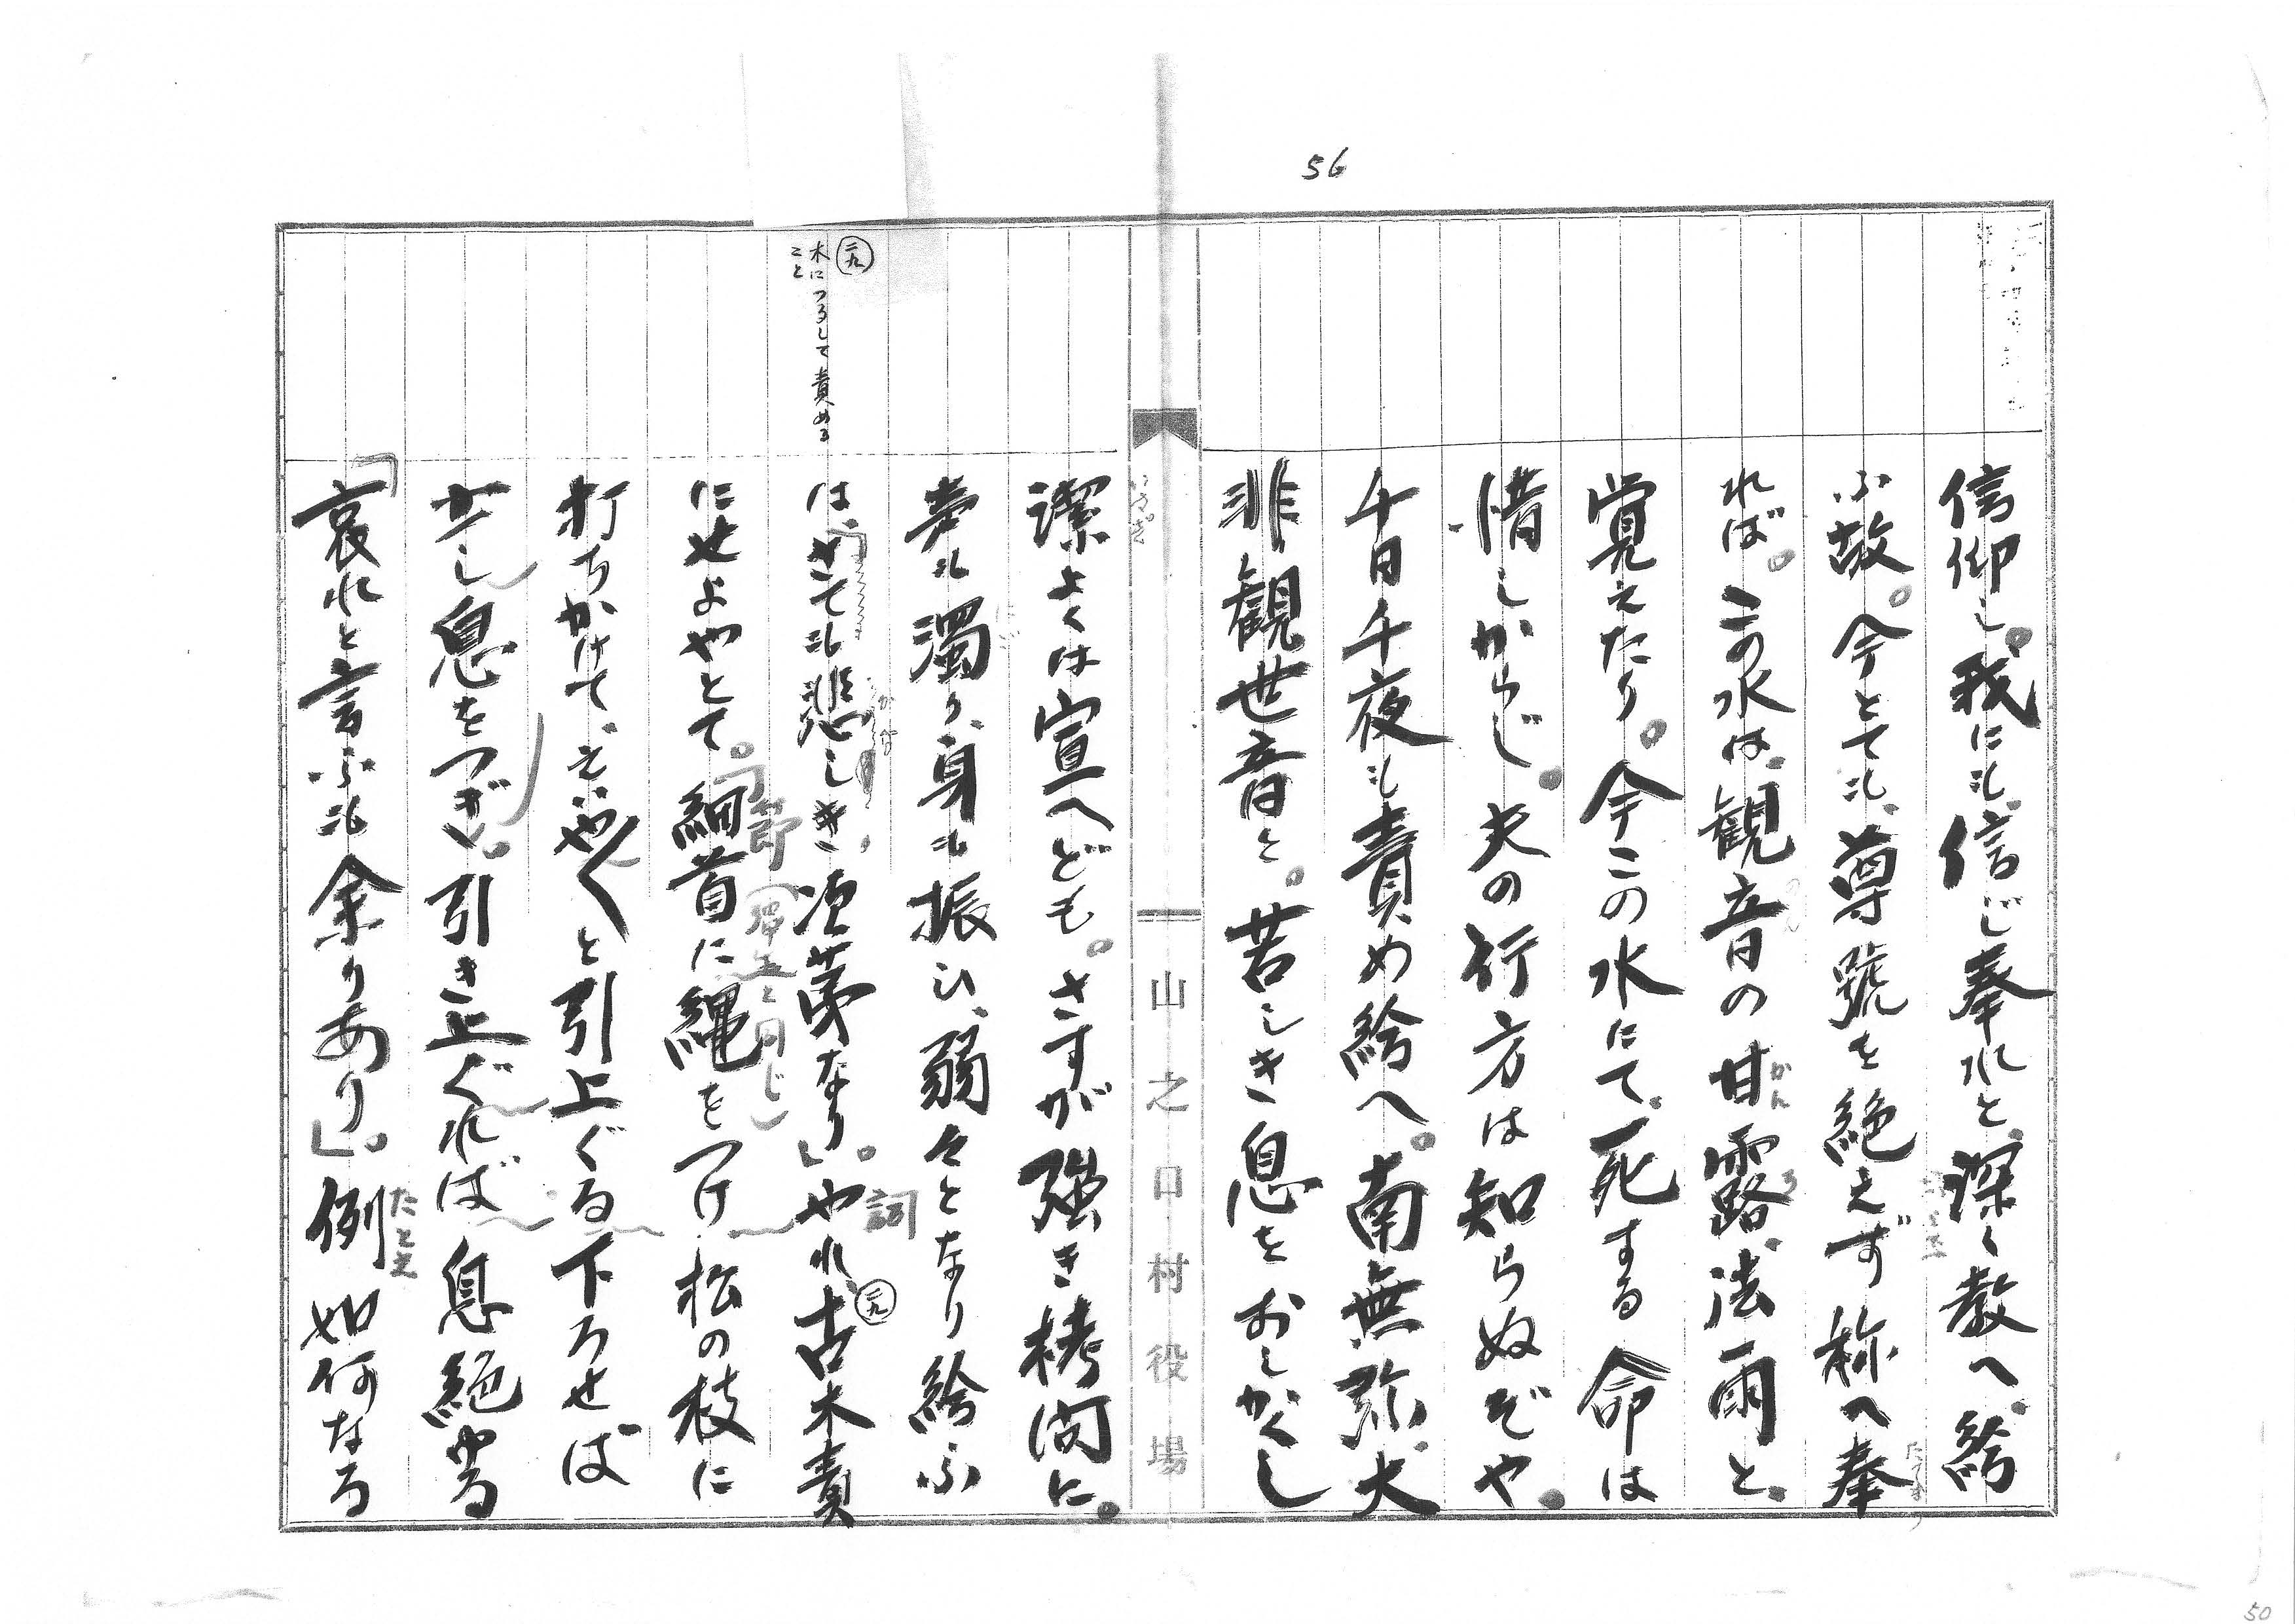 56
信仰し。我にも、信じ奉れと、深く教へ、給
ふ故。今とても、尊號を絶えず称へ奉
れば。この水は、観音の甘露法雨と、
かん
ろ
覚えたり。今この水にて、死する命は
惜しからじ。夫の行方は知らぬぞや。
千日千夜も責め給へ。南無弥大
非観世音と。苦しき息をおしかくし
山之口村役場
潔よくは宣へども。さすが強き拷問に。
いさぎ
声も濁り、身も振ひ、弱々となり給ふ
にご
は、さても悲しき次第なり」。やれ、古木責
かな
詞
二九
二九
木につるして責める
こと
にせよやとて。「細首に縄をつけ松の枝に
節
打ちかけて、ゑいや〱と引上ぐる下ろせば
少し息をつぎ、引き上ぐれば息絶ゆる
「哀れと言ふも余りあり」。例如何なる
たとえ
50